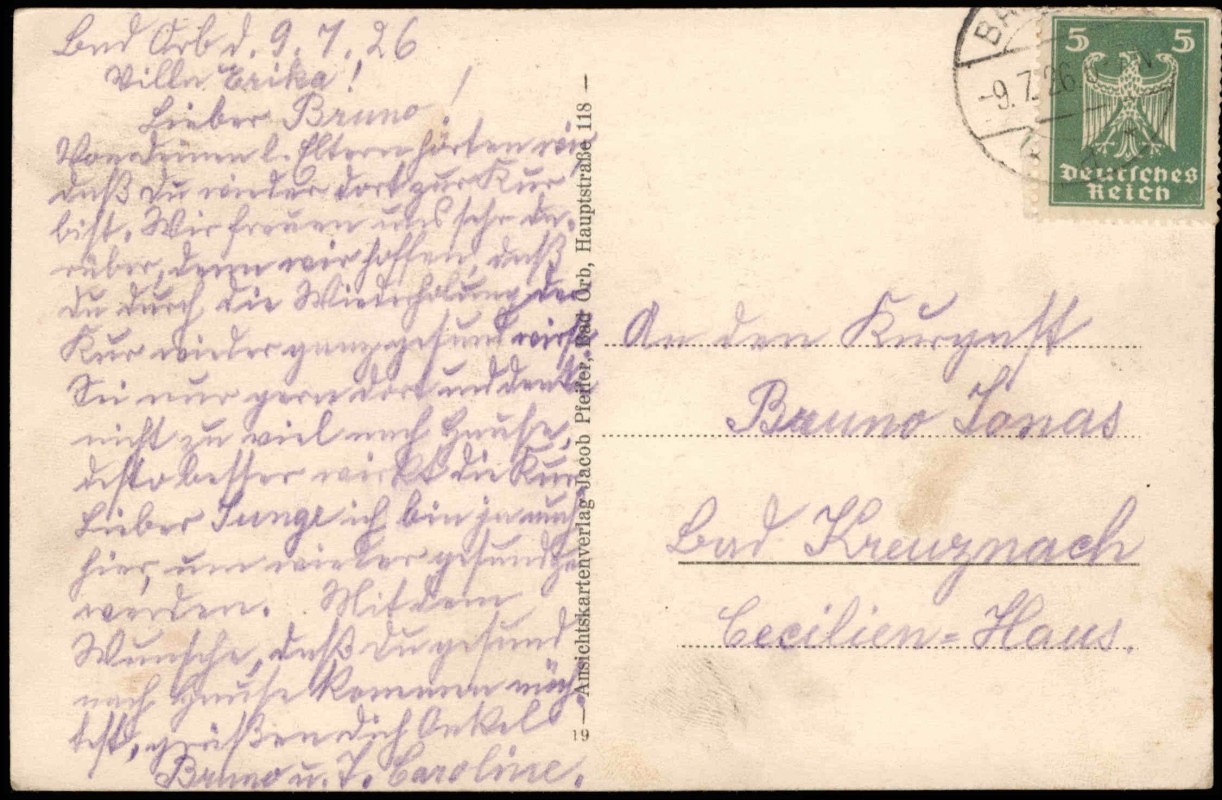 Bad Orb d. 9.7.26
Villa Erika!
Lieber Bruno!
Von deinen l. Eltern hörten wir
daß du wieder dort zur Kur
bist. Wir freuen uns sehr da-
rüber, denn wir hoffen, daß
du durch die Wiederholung der
Kur wieder ganz gesund wirst.
Sei nur gern dort und denke
nicht zu viel nach Hause,
desto besser wirkt die Kur
Lieber Junge ich bin ja auch
hier, um wieder gesund zu
werden. Mit dem
Wunsche, daß du gesund
nach Hause kommen möch-
test, grüßen dich Onkel
Bruno u. T. Caroline.
19 — Ansichtskartenverlag Jacob Pfeifer, Bad Orb, Hauptstraße 118 —
-9.7.26
5 5
Deutsches
Reich
An den Kurgast
Bruno Jonas
Bad Kreuznach
Cecilien-Haus.